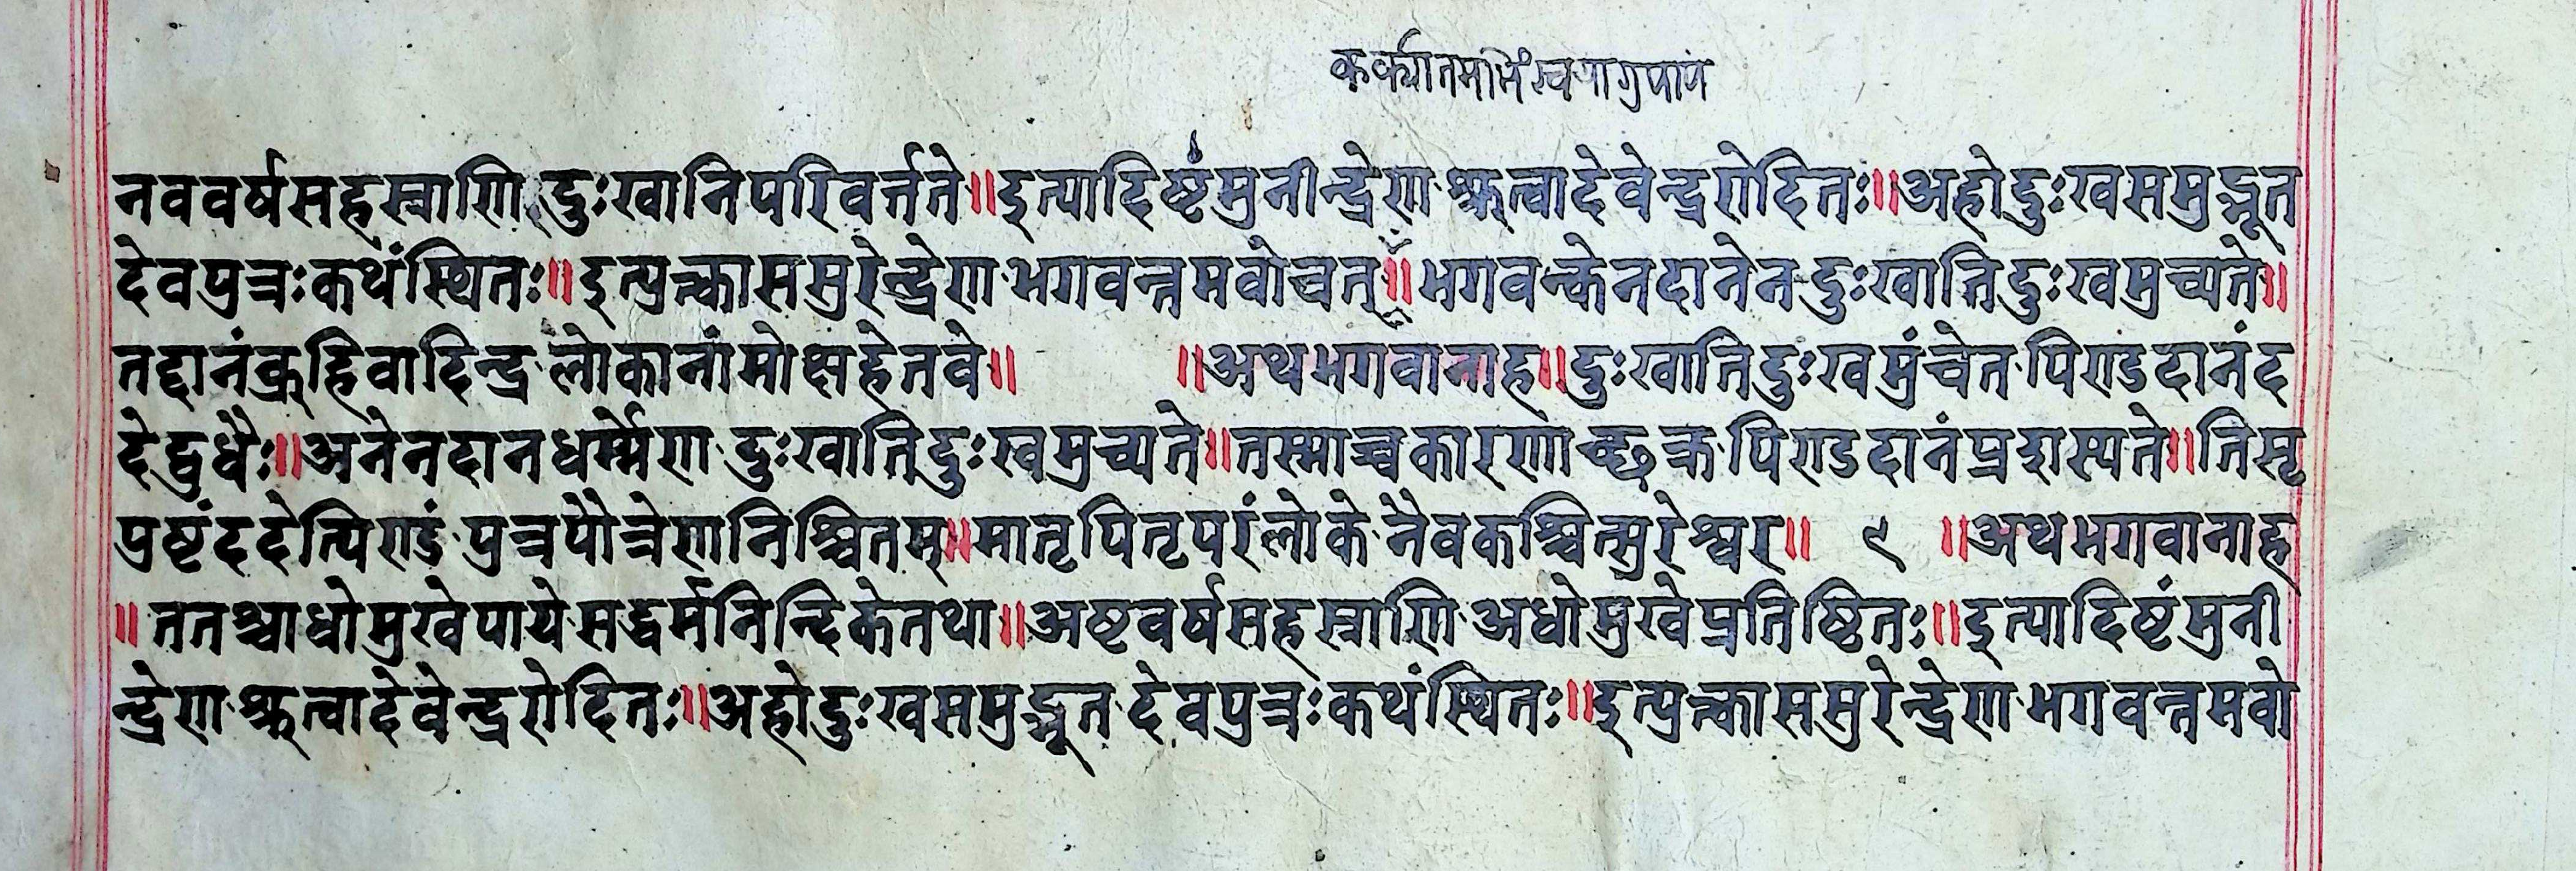 नववर्षसहस्राणि दुःखानिपरिवर्त्तते॥इत्यादिष्टंमुनीन्द्रेण श्रुत्वादेवेन्द्ररोदितः॥अहोदुःखसमुद्भूत
देवपुत्रःकथंस्थितः॥इत्युक्त्वाससुरेन्द्रेण भगवन्तमवोचत्॥भगवन्केनदानेन दुःखातिदुःखमुच्यते॥
तद्दानंब्रूहिवादिन्द्र लोकानांमोक्षहेतवे॥ ॥अथभगवानाह॥दुःखातिदुःखमुंचेत पिण्डदानंद
देद्बुधैः॥अनेनदानधर्म्मेण दुःखातिदुःखमुच्यते॥तस्माच्चकारणाच्छक्र पिण्डदानंप्रदास्यते॥तिसृ
प्रष्टंददेत्पिण्डं पुत्रपौत्रेणनिश्चितम्॥मातृपितृपरंलोके नैवकश्चित्सुरेश्वर॥ ९ ॥अथभगवानाह
॥ततश्चाधोमुखेपाये सद्धर्मनिन्दिकेतथा॥अष्टवर्षसहस्राणि अधोमुखेप्रतिष्ठितः॥इत्यादिष्टंमुनी
न्द्रेण श्रुत्वादेवेन्द्ररोदितः॥अहोदुःखसमुद्भूत देवपुत्रःकथंस्थितः॥इत्युक्त्वाससुरेन्द्रेण भगवन्तमवो